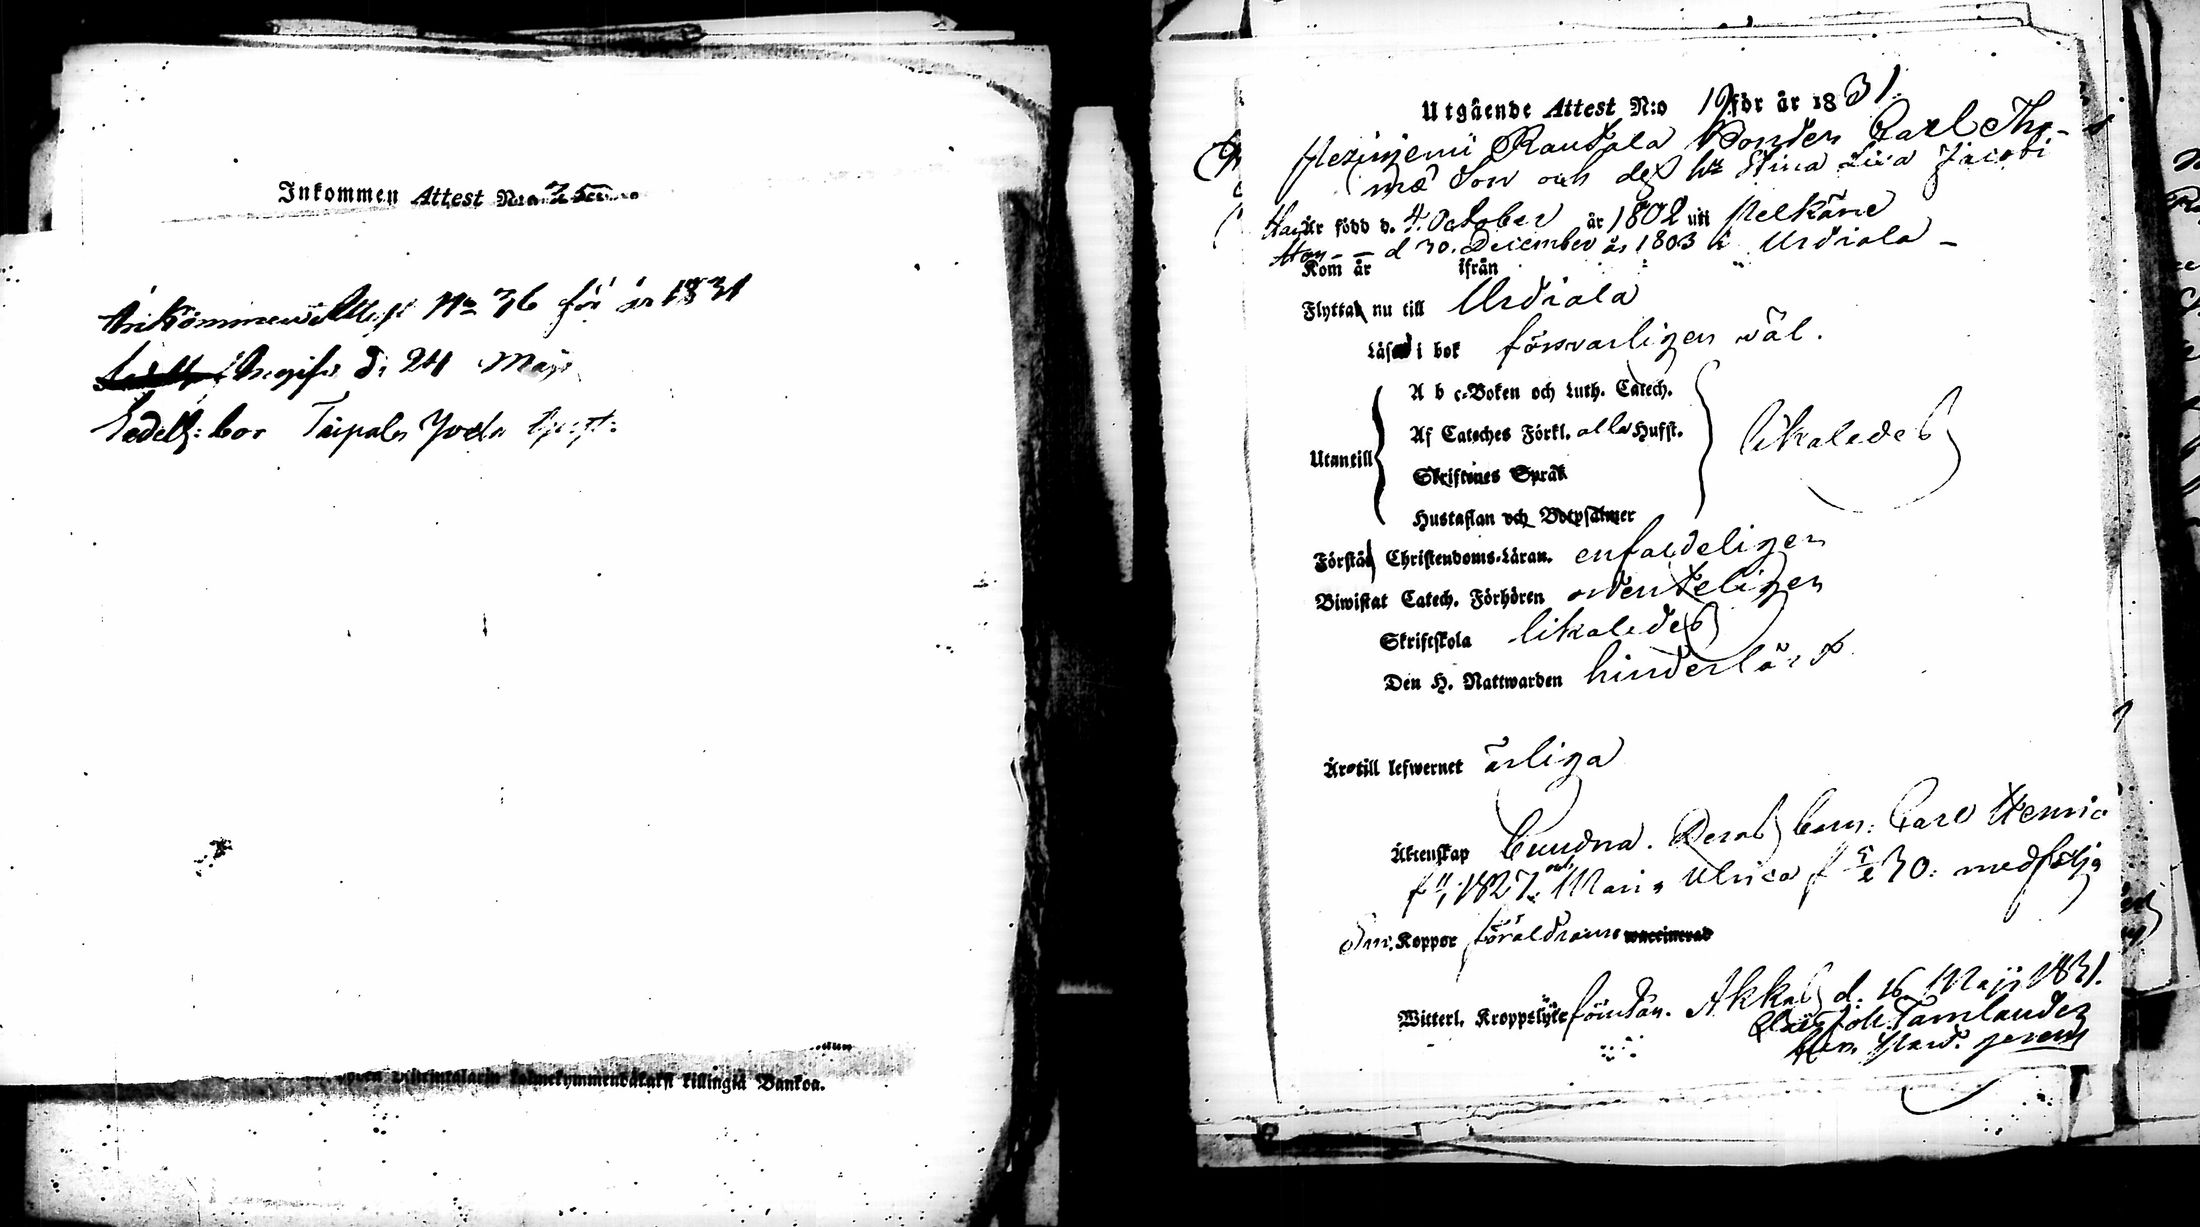 Inkommen Attest N:o
Ankommen Attest No 36 för år 1831
Uregifs d. 24 Maji
bor Taipale Joda
Bankoa.
Utgående Attest N:o 19 för år 1831.
Rautala Bonden Carl Tho-
mæ Son och deß h:u Stina Lisa Jacobi
Han Är född d. 4. October år 1802 uti Pelkäne
Hon - - d 30. December år 1803 i Urdiala -
Kom år ifrån
Flytta nu till Urdiala
Läsa i bok försvarligen väl.
A b c-Boken och Luth. Catech.
Af Cateches Förkl. alla Hufst.
Utantill likaledes
Skriftenes Språk
Hustaflan och Botpsalmer
Förstå Christendoms-Läran. enfaldeligen
Biwistat Catech. Förhören ordenteligen
Skriftskola likaledes
Den H. Nattwarden hinderlöst
Äro till lefwernet ärliga
Äktenskap bundna. Deras barn: Carl Henric
f 1827. och Maria Ulrica f 30: medfölja
Koppor föräldrarne waccinerad
Witterl. Kroppslyte förutan. Akkas d. 16 Maji 1831.
Joh. Tamlander